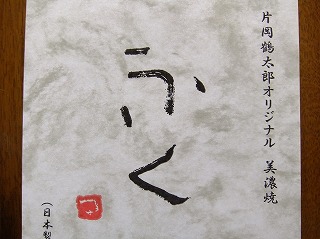 片岡鶴太郎オリジナル 美濃焼
ふく
つ
(日本製